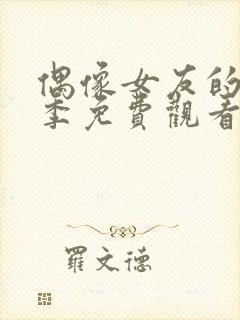 偶像女友的
季免費觀看
羅文德